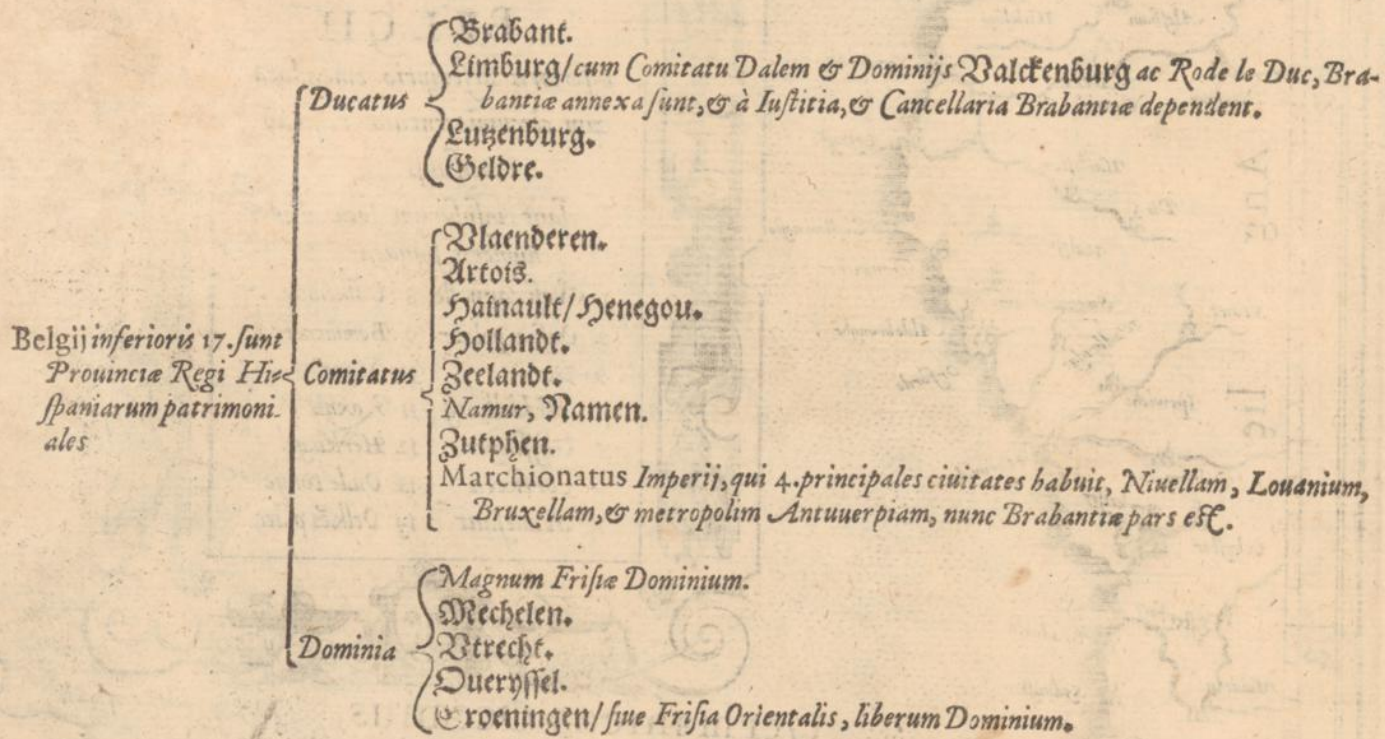 Belgij inferioris 17. sunt
Prouinciæ Regi Hi-
spaniarum patrimoni-
ales
Ducatus
Brabant.
Limburg/ cum Comitatu Dalem & Dominijs Valckenburg ac Rode le Duc, Bra-
bantiæ annexa sunt, & à Iustitia, & Cancellaria Brabantiæ dependent.
Lutzenburg.
Geldre.
Comitatus
Vlaenderen.
Artois.
Hainault/ Henegou.
Hollandt.
Zeelandt.
Namur, Namen.
Zutphen.
Marchionatus Imperij, qui 4. principales ciuitates habuit, Niuellam, Louanium,
Bruxellam, & metropolim Antuuerpiam, nunc Brabantiæ pars est.
Dominia
Magnum Frisiæ Dominium.
Mechelen.
Vtrecht.
Oueryssel.
Groeningen/ siue Frisia Orientalis, liberum Dominium.